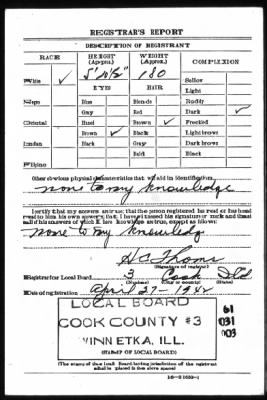 REGISTRAR'S REPORT
DESCRIPTION OF REGISTRANT
RACE HEIGHT (Approx.) WEIGHT (Approx.) COMPLEXION
White ✓ 5' 10½" 180 Sallow
EYES HAIR Light
Negro Blue Blonde Ruddy
Gray Red Dark ✓
Oriental Hazel Brown ✓ Freckled
Brown ✓ Black Light brown
Indian Black Gray Dark brown
Bald Black
Filipino
Other obvious physical characteristics that will aid in identification
none to my knowledge
I certify that my answers are true; that the person registered has read or has had
read to him his own answers; that I have witnessed his signature or mark and that
all of his answers of which I have knowledge are true, except as follows:
none to my knowledge
(Signature of registrar)
Registrar for Local Board 3 Cook Ill
(Number) (City or county) (State)
Date of registration April 27-1942
LOCAL BOARD
COOK COUNTY #3
WINNETKA, ILL.
61
031
003
(STAMP OF LOCAL BOARD)
(The stamp of the Local Board having jurisdiction of the registrant
shall be placed in the above space)